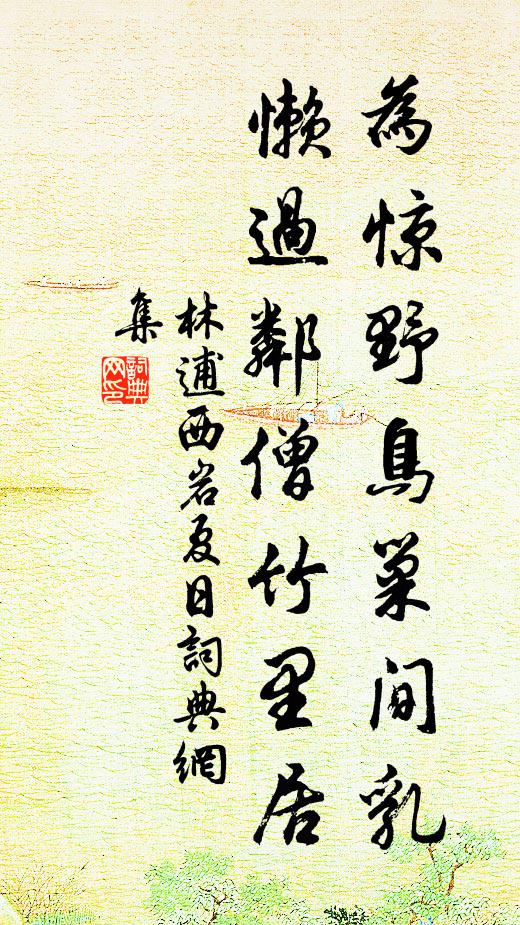 為惊野鳥巢间乳
懒過鄰僧竹里居
林逋西岩夏日詞典網
集
詞典
网印